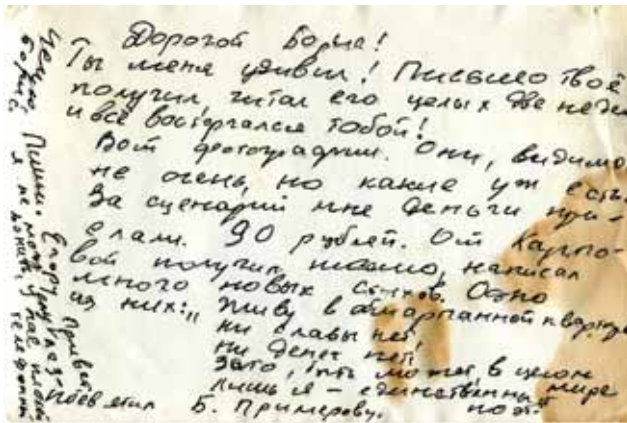 Дорогой Борис!
Ты меня удивил! Письмо твоё
получил, читал его целых две недели
и всё восторгался тобой!
Вот фотографии. Они, видимо
не очень, но какие уж есть.
За сценарий мне деньги при-
слали. 90 рублей. От Карпо-
вой получил письмо, написал
много новых стихов. Одно
из них: „Живу в обшарпанной квартире
ни славы нет,
ни денег нет,
Зато, быть может, в целом мире
лишь я – единственный поэт."
Посвятил Б. Примерову.
Егору привет
Пиши.
Борис,
я не могу